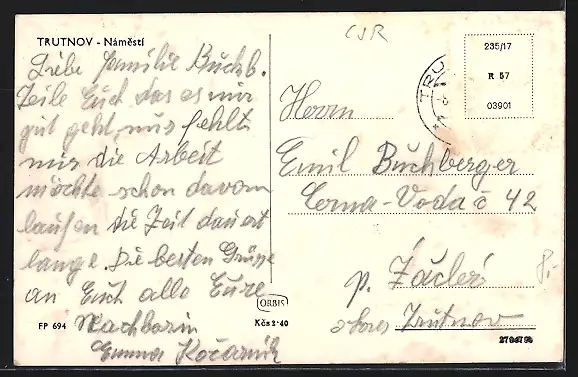 ČSR
TRUTNOV - Náměstí
Liebe Familie Buchb.
Teile Euch das es mir
gut geht, nur fehlt
mir die Arbeit
möchte schon davon
laufen die Zeit dauert
lange. Die besten Grüsse
an Euch alle Eure
Nachbarin
Emma
FP 694
ORBIS
Kčs 2·40
235/17
R 57
03901
TRU
Herrn
Emil Buchberger
Černa-Voda č 42
p. Žacleř
okres Trutnov
8,-